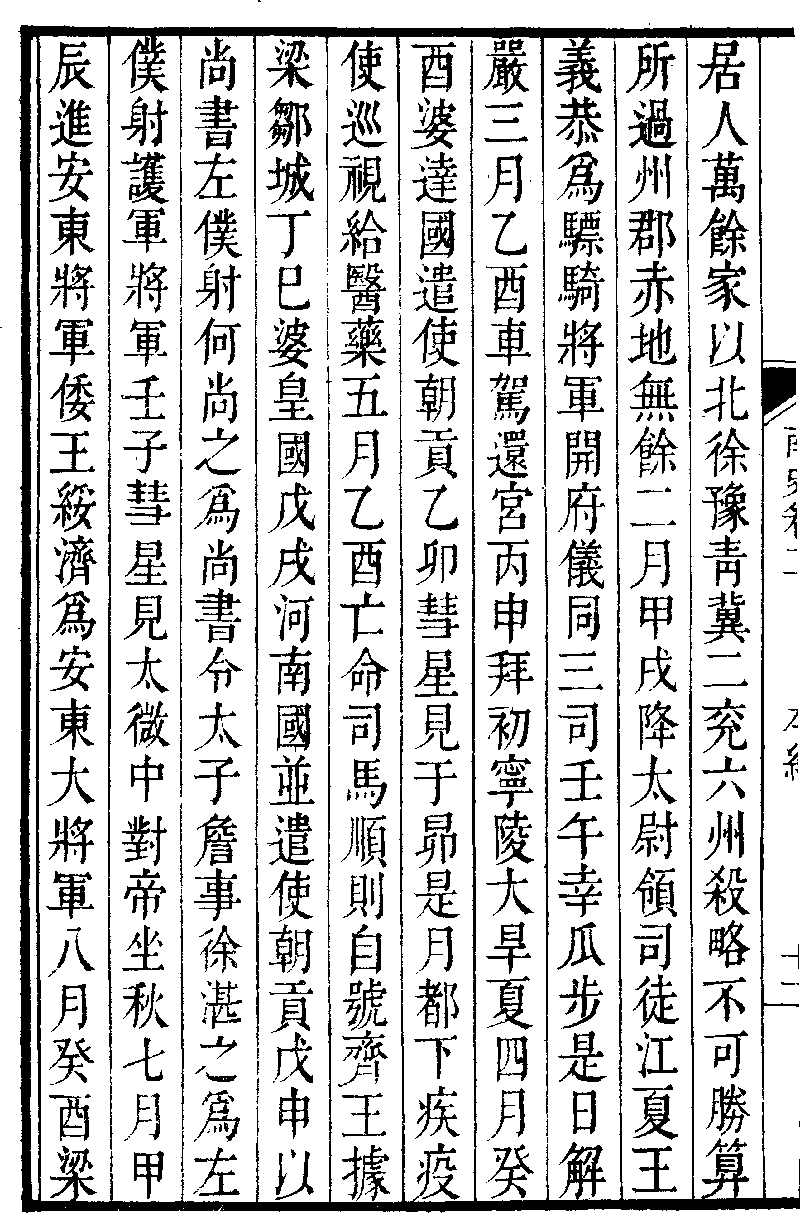 居人萬餘家以北徐豫青冀二兖六州殺略不可勝算
所過州郡赤地無餘二月甲戌降太尉領司徒江夏王
義恭爲驃騎將軍開府儀同三司壬午幸瓜步是日解
嚴三月乙酉車駕還宮丙申拜初寧陵大旱夏四月癸
酉婆達國遣使朝貢乙卯彗星見于昴是月都下疾疫
使巡視給醫藥五月乙酉亡命司馬順則自號齊王據
梁鄒城丁巳婆皇國戊戌河南國並遣使朝貢戊申以
尚書左僕射何尚之爲尚書令太子詹事徐湛之爲左
僕射護軍將軍壬子彗星見太微中對帝坐秋七月甲
辰進安東將軍倭王綏濟爲安東大將軍八月癸酉梁